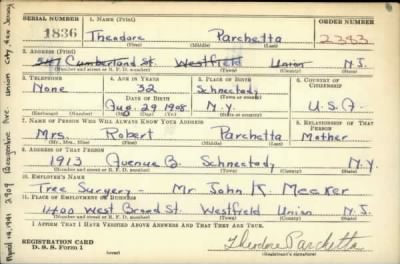 SERIAL NUMBER 1. NAME (Print) ORDER NUMBER
1836 Theodore Parchetta 2383
(First) (Middle) (Last)
2. ADDRESS (Print)
547 Cumberland St. Westfield Union N.J.
(Number and street or R. F. D. number) (Town) (County) (State)
3. TELEPHONE 4. AGE IN YEARS 5. PLACE OF BIRTH 6. COUNTRY OF CITIZENSHIP
None 32 Schnectady
DATE OF BIRTH
Aug. 29 1908 N.Y. U.S.A.
(Exchange) (Number) (Mo.) (Day) (Yr.) (State or country)
7. NAME OF PERSON WHO WILL ALWAYS KNOW YOUR ADDRESS 8. RELATIONSHIP OF THAT PERSON
Mrs. Robert Parchetta Mother
(Mr., Mrs., Miss) (First) (Middle) (Last)
9. ADDRESS OF THAT PERSON
1913 Avenue B Schnectady N.Y.
(Number and street or R. F. D. number) (Town) (County) (State)
10. EMPLOYER'S NAME
Tree Surgery - Mr John K. Meeker
11. PLACE OF EMPLOYMENT OR BUSINESS
1400 West Broad St. Westfield Union N.J.
(Number and street or R. F. D. number) (Town) (County) (State)
I AFFIRM THAT I HAVE VERIFIED ABOVE ANSWERS AND THAT THEY ARE TRUE.
REGISTRATION CARD
D. S. S. FORM 1 (over) Theodore Parchetta
(Registrant's signature)
April 14, 1941 2909 Ave. Union City, New Jersey